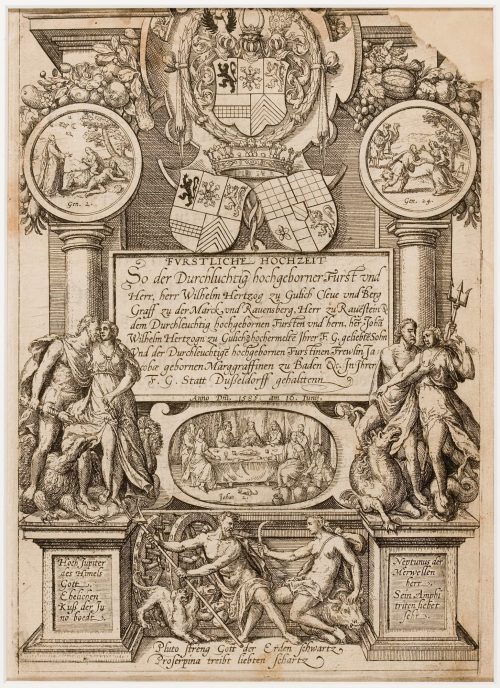 Gen. 2.
Gen. 24.
FVRSTLICHE HOCHZEIT
So der Durchluchtig hochgeborner Furst vnd
Herr, herr Wilhelm Hertzog zu Gulich Cleue vnd Berg
Graff zu der Marck vnd Rauensberg, Herr zu Rauestein
dem Durchleuchtig hochgebornen Fursten vnd hern, her Johan
Wilhelm Hertzogn zu Gulich hochermelte Ihrer F. G. geliebte Sohn
Vnd der Durchleuchtige hochgebornen Furstinen Frewlin Ja
cobæ gebornen Marggraffinen zu Baden &c. In Ihrer
F. G. Statt Dusseldorff gehaltenn
Anno Dñi. 1585. am 16. Junij.
Johan 2.
Hoch Jupiter
des Himels
Gott
Ehelichen
Kuß der Ju
no boedt
Neptunus der
Merwellen
herr
Sein Amphi
triten liebet
sehr
Pluto streng Gott der Erden schwartz
Proserpina treibt liebten schartz